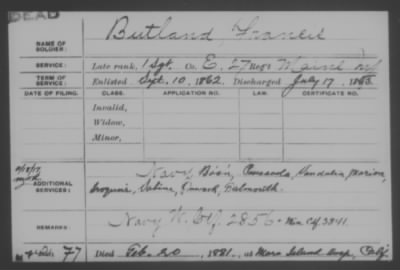 DEAD
NAME OF SOLDIER: Butland, Francis
SERVICE: Late rank, 1 Sgt. Co. E, 27 Reg't Maine Inf
TERM OF SERVICE: Enlisted Sept. 10, 1862. Discharged July 17, 1863.
DATE OF FILING. CLASS. APPLICATION NO. LAW. CERTIFICATE NO.
Invalid,
Widow,
Minor,
ADDITIONAL SERVICES: Navy Bos'n, Pensacola, Vandalia, Marion,
Iroquois, Sabine, Dalmouth.
REMARKS: Navy W. Ctf. 2856 - Min Ctf. 3841.
77 Died Feb. 20, 1881, at Mare Island Hosp, Calif